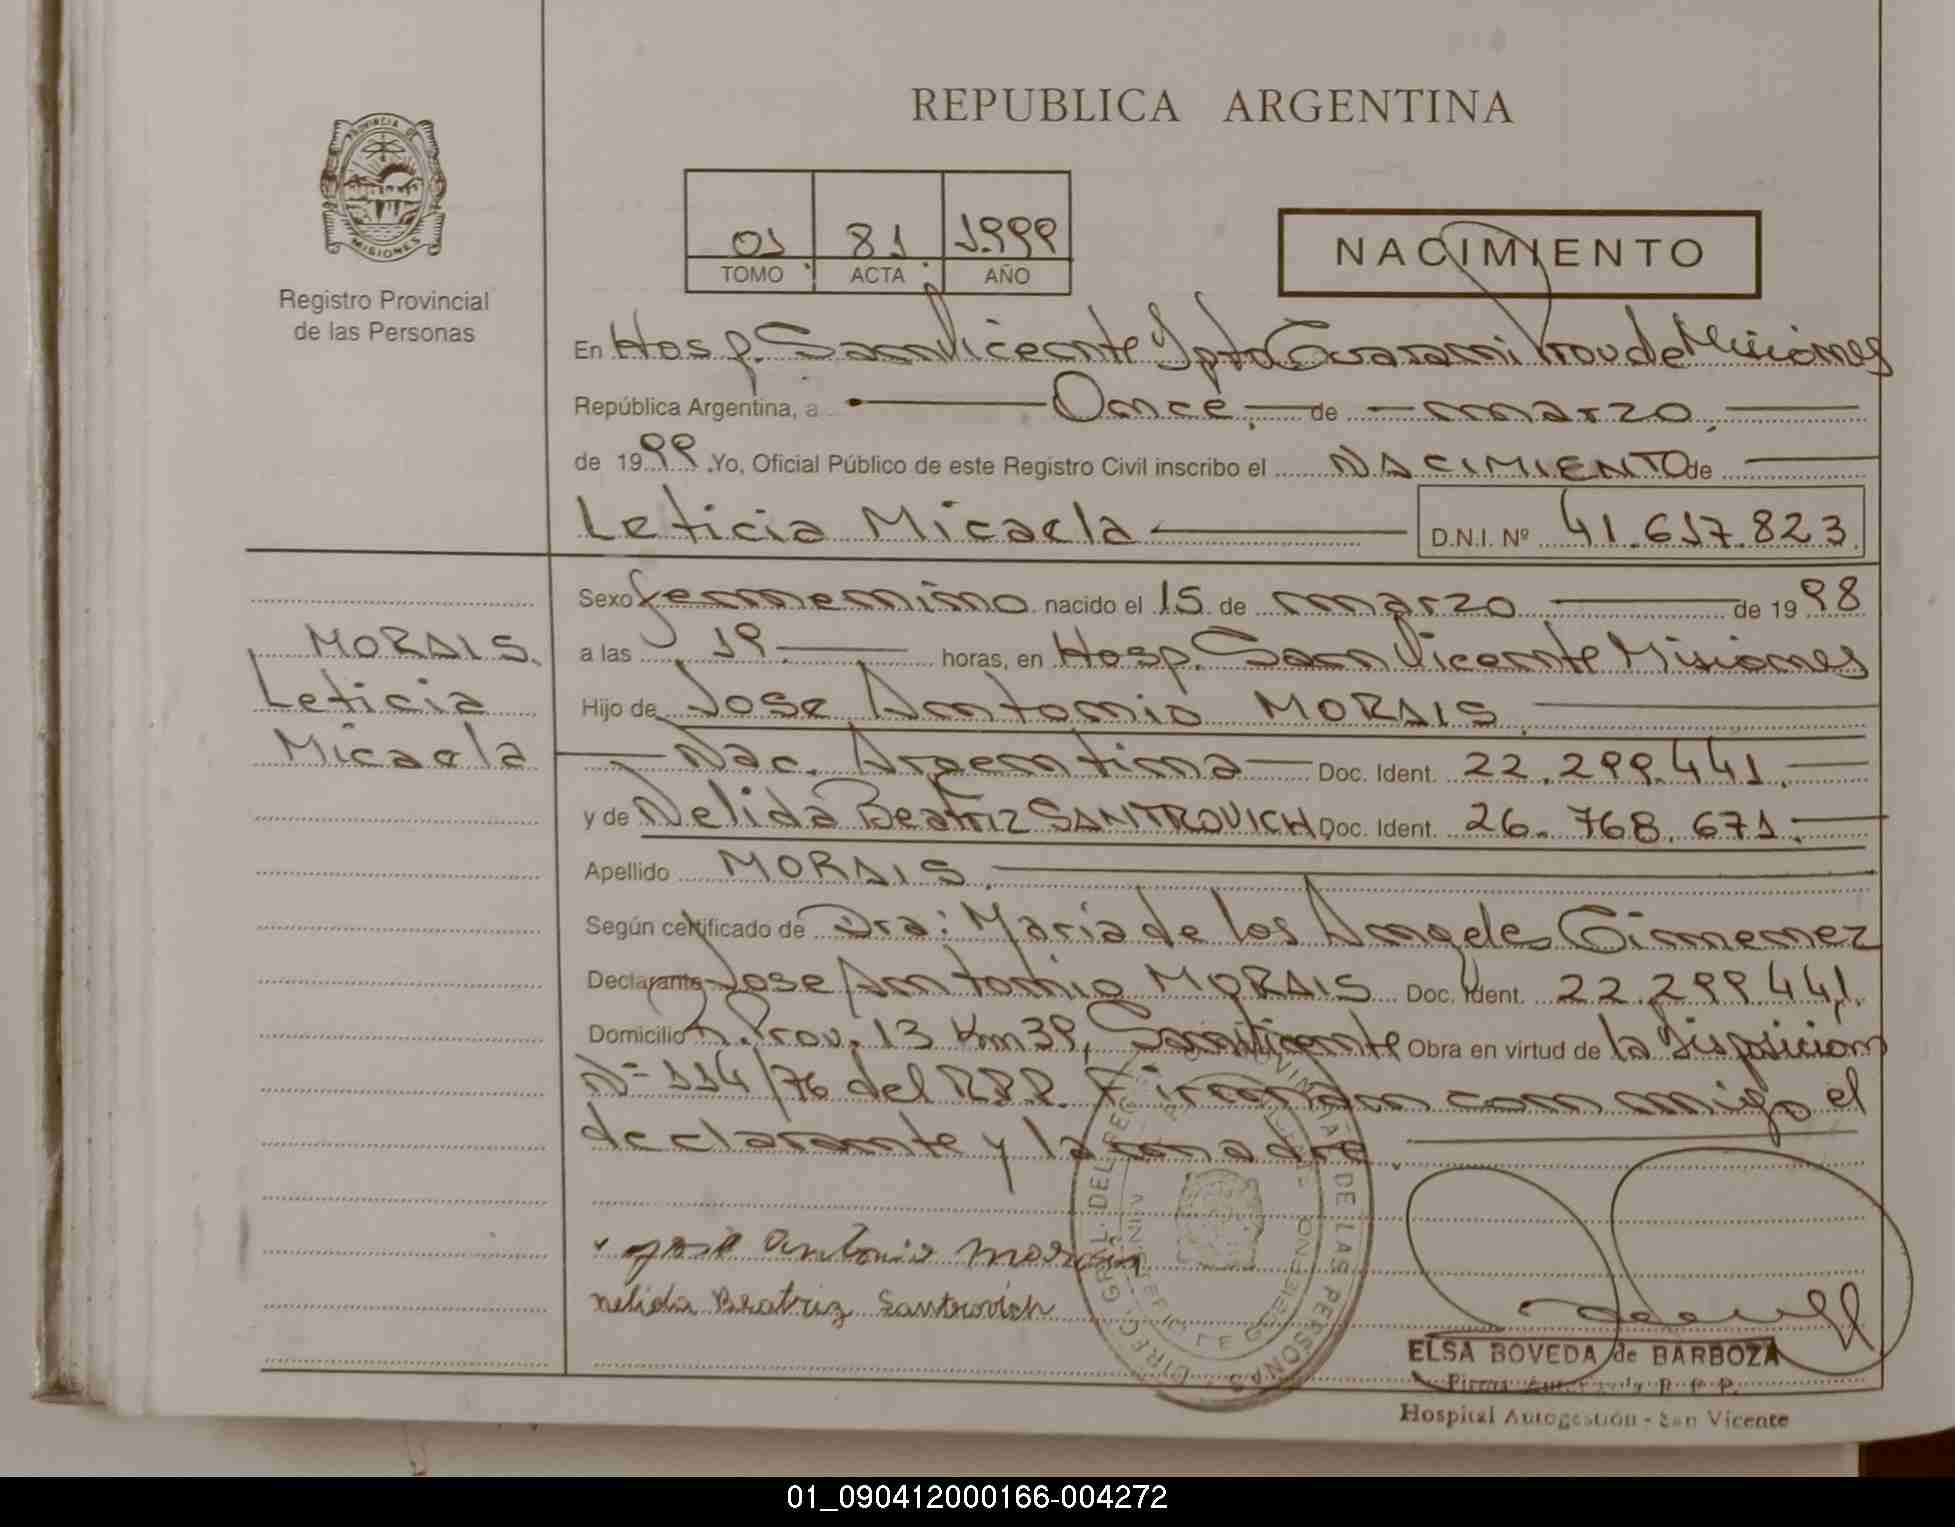 REPUBLICA ARGENTINA
PROVINCIA DE
MISIONES
Registro Provincial
de las Personas
01 81 1.999
TOMO ACTA AÑO
NACIMIENTO
En Hosp. San Vicente Dpto Guarani Prov de Misiones
República Argentina, a Once de marzo
de 1999 Yo, Oficial Público de este Registro Civil inscribo el NACIMIENTO de
Leticia Micaela D.N.I. Nº 41.617.823
Sexo femenino nacido el 15 de marzo de 1998
a las 19 horas, en Hosp. San Vicente Misiones
Hijo de Jose Antonio MORAIS
Nac. Argentina Doc. Ident. 22.299.441
y de Nelida Beatriz SANTROVICH Doc. Ident. 26.768.671
Apellido MORAIS
Según certificado de Dra: Maria de los Angeles Gimenez
Declarante Jose Antonio MORAIS Doc. Ident. 22.299.441
Domicilio R. Prov. 13 Km 39, San Vicente Obra en virtud de la Disposición
Nº 114/76 del R.P.P. Firman con migo el
declarante y la madre.
MORAIS.
Leticia
Micaela
jose antonio morais
nelida Beatriz Santrovich
DIREC. GRAL. DEL REG. PROVINCIAL DE LAS PERSONAS
MINISTERIO DE GOBIERNO
ELSA BOVEDA de BARBOZA
Firma Autorizada R. P. P.
Hospital Autogestión - San Vicente
01_090412000166-004272